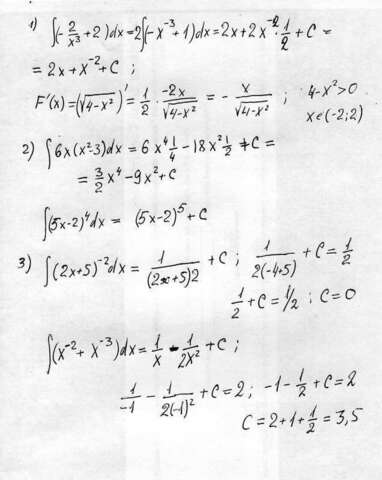 1) ∫(-2/x³+2)dx=2∫(-x⁻³+1)dx=2x+2x⁻²·1/2+C=
=2x+x⁻²+C ;
F'(x)=(√(4-x²))'=1/2·-2x/√(4-x²)=-x/√(4-x²) ; 4-x²>0
x∈(-2;2)
2) ∫6x(x²-3)dx=6x⁴1/4-18x²1/2+C=
=3/2x⁴-9x²+C
∫(5x-2)⁴dx= (5x-2)⁵+C
3) ∫(2x+5)⁻²dx=1/(2x+5)2+C ; 1/2(-4+5)+C=1/2
1/2+C=1/2 ; C=0
∫(x⁻²+x⁻³)dx=1/x-1/2x²+C ;
1/-1-1/2(-1)²+C=2 ; -1-1/2+C=2
C=2+1+1/2=3,5